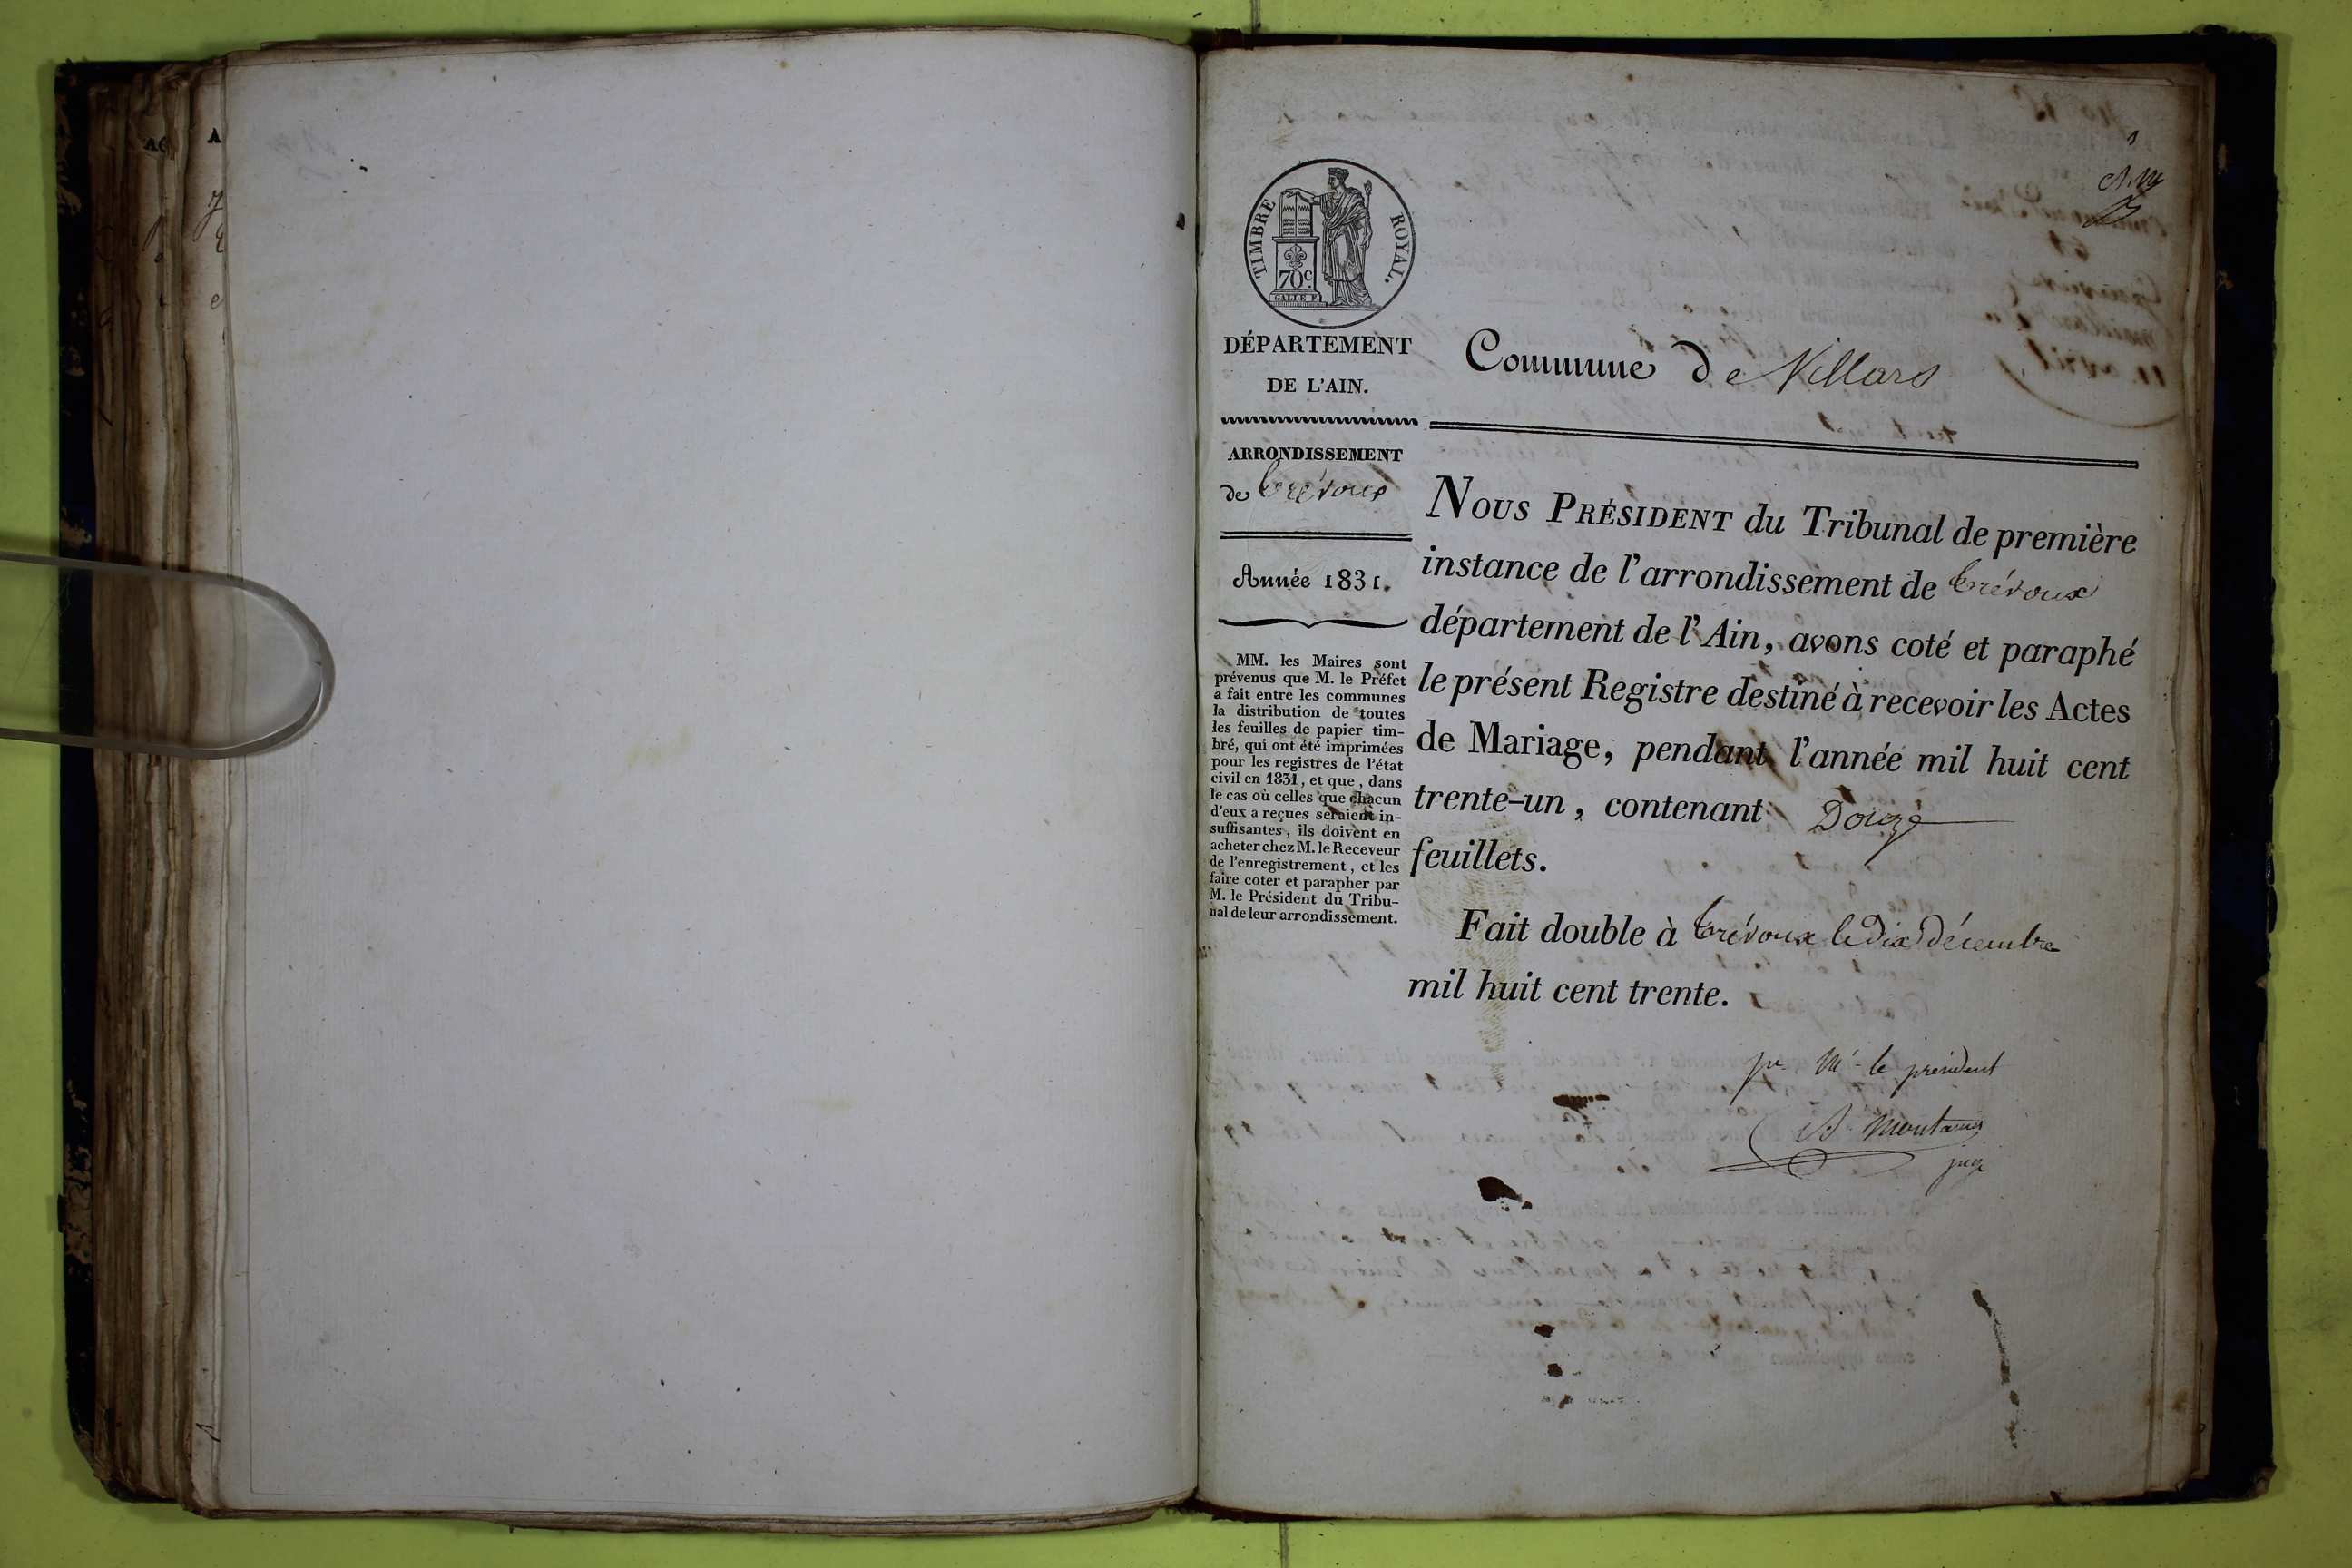 1
TIMBRE ROYAL.
70c.
GALLE F.
DÉPARTEMENT
DE L'AIN.
ARRONDISSEMENT
de Trévoux
Année 1831.
MM. les Maires sont
prévenus que M. le Préfet
a fait entre les communes
la distribution de toutes
les feuilles de papier tim-
bré, qui ont été imprimées
pour les registres de l'état
civil en 1831, et que, dans
le cas où celles que chacun
d'eux a reçues seraient in-
suffisantes, ils doivent en
acheter chez M. le Receveur
de l'enregistrement, et les
faire coter et parapher par
M. le Président du Tribu-
nal de leur arrondissement.
Commune de Villars
NOUS PRÉSIDENT du Tribunal de première
instance de l'arrondissement de Trévoux
département de l'Ain, avons coté et paraphé
le présent Registre destiné à recevoir les Actes
de Mariage, pendant l'année mil huit cent
trente-un, contenant Douze
feuillets.
Fait double à Trévoux le dix décembre
mil huit cent trente.
pr. Mr. le président
juge